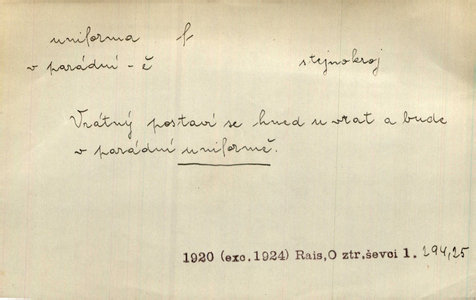 uniforma f
v parádní - ě stejnokroj
Vrátný postaví se hned u vrat a bude
v parádní uniformě.
1920 (exc.1924) Rais,O ztr.ševci 1. 294,25